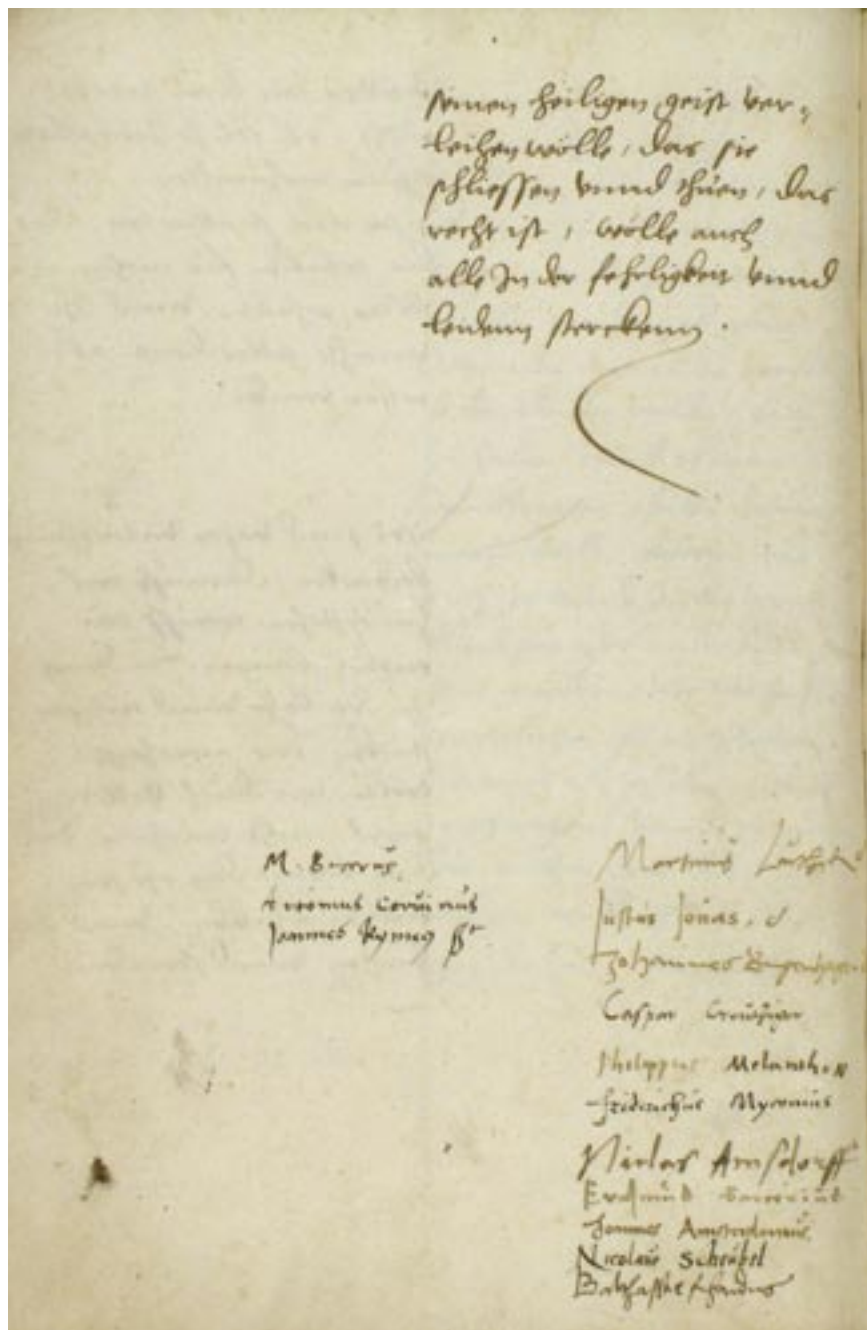 seinen heiligen geist ver-
leihen wolle, das sie
schliessen vnnd thuen, das
recht ist, wolle auch
alle In der fehrligkeit vnnd
leidenn sterckenn.
M. Bucerus
Antonius Corvinus
Joannes Kymeus
Martinus Luther
Justus Jonas. d
Johannes Bugenhagen
Caspar Creutziger
Philippus Melanthon
Fridericus Myconius
Niclas Amsdorff
Erasmus Sarcerius
Joannes Amsterdamus
Nicolaus Scheubel
Balthassar